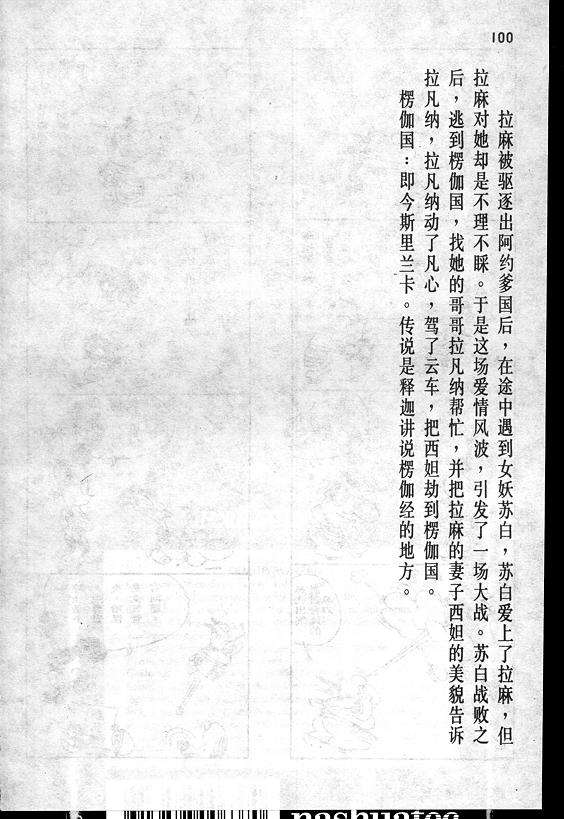 100
拉麻被驱逐出阿约爹国后，在途中遇到女妖苏白，苏白爱上了拉麻，但
拉麻对她却是不理不睬。于是这场爱情风波，引发了一场大战。苏白战败之
后，逃到楞伽国，找她的哥哥拉凡纳帮忙，并把拉麻的妻子西妲的美貌告诉
拉凡纳，拉凡纳动了凡心，驾了云车，把西妲劫到楞伽国。
楞伽国：即今斯里兰卡。传说是释迦讲说楞伽经的地方。